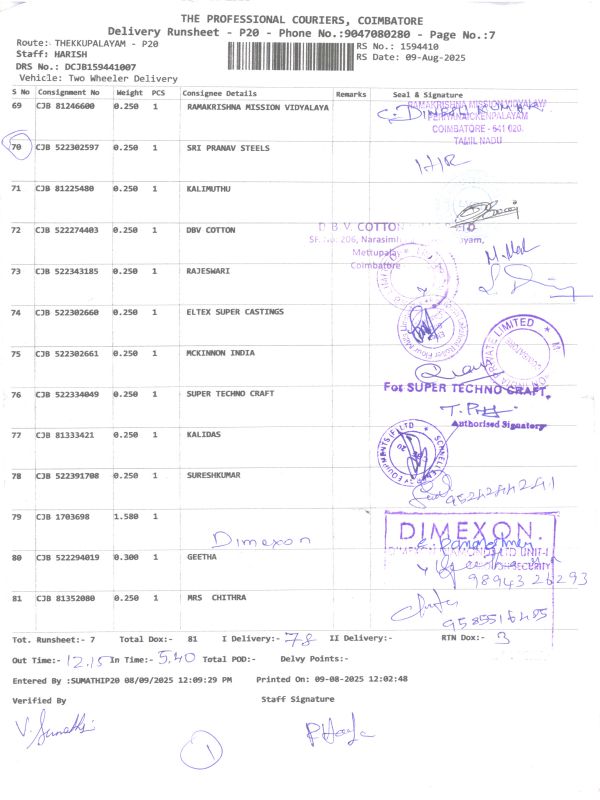 THE PROFESSIONAL COURIERS, COIMBATORE
Delivery Runsheet - P20 - Phone No.:9047080280 - Page No.:7
Route:- THEKKUPALAYAM - P20
RS No.: 1594410
Staff: HARISH
RS Date: 09-Aug-2025
DRS No.: DCJB159441007
Vehicle: Two Wheeler Delivery
S No Consignment No Weight PCS Consignee Details Remarks Seal & Signature
69 CJB 81246600 0.250 1 RAMAKRISHNA MISSION VIDYALAYA
RAMAKRISHNA MISSION VIDYALAYA
PERIYANAICKENPALAYAM
COIMBATORE - 641 020.
TAMIL NADU
70 CJB 522302597 0.250 1 SRI PRANAV STEELS
71 CJB 81225480 0.250 1 KALIMUTHU
72 CJB 522274403 0.250 1 DBV COTTON
D B V. COTTON
SF. No. 206, Narasim
Mettupala
Coimbatore
73 CJB 522343185 0.250 1 RAJESWARI
74 CJB 522302660 0.250 1 ELTEX SUPER CASTINGS
75 CJB 522302661 0.250 1 MCKINNON INDIA
76 CJB 522334049 0.250 1 SUPER TECHNO CRAFT
For SUPER TECHNO CRAFT,
Authorised Signatory
77 CJB 81333421 0.250 1 KALIDAS
78 CJB 522391708 0.250 1 SURESHKUMAR
79 CJB 1703698 1.580 1 Dimexon
DIMEXON.
80 CJB 522294019 0.300 1 GEETHA
98943 26293
81 CJB 81352080 0.250 1 MRS CHITHRA
Tot. Runsheet:- 7 Total Dox:- 81 I Delivery:- 78 II Delivery:- RTN Dox:- 3
Out Time:- 12.15 In Time:- 5.40 Total POD:- Delvy Points:-
Entered By :SUMATHIP20 08/09/2025 12:09:29 PM Printed On: 09-08-2025 12:02:48
Verified By Staff Signature
V. Sumathi
1